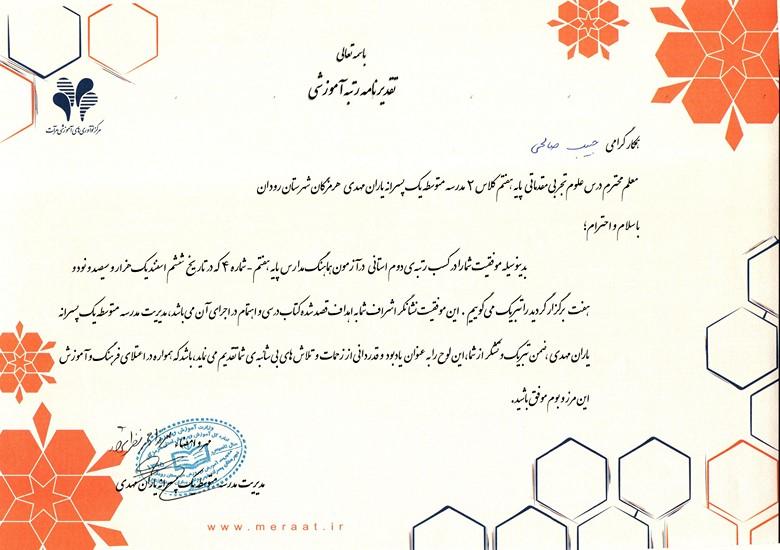 باسمه تعالی
تقدیرنامه رتبه آموزشی
مرکز نوآوری‌های آموزشی مرآت
همکار گرامی حبیب صالحی
معلم محترم درس علوم تجربی مقدماتی پایه هفتم کلاس ۲ مدرسه متوسطه یک پسرانه یاران مهدی هرمزگان شهرستان رودان
با سلام و احترام؛
بدینوسیله موفقیت شما را در کسب رتبه‌ی دوم استانی در آزمون هماهنگ مدارس پایه هفتم - شماره ۴ که در تاریخ ششم اسفند یک هزار و سیصد و نود و
هفت برگزار گردید را تبریک می گوییم . این موفقیت نشانگر اشراف شما به اهداف قصد شده کتاب درسی و اهتمام در اجرای آن می باشد، مدیریت مدرسه متوسطه یک پسرانه
یاران مهدی ،ضمن تبریک و تشکر از شما، این لوح را به عنوان یادبود و قدردانی از زحمات و تلاش های بی شائبه ی شما تقدیم می نماید، باشد که همواره در اعتلای فرهنگ و آموزش
این مرز و بوم موفق باشید.
مهر و امضاء
مدیریت مدرسه متوسطه یک پسرانه یاران مهدی
www.meraat.ir